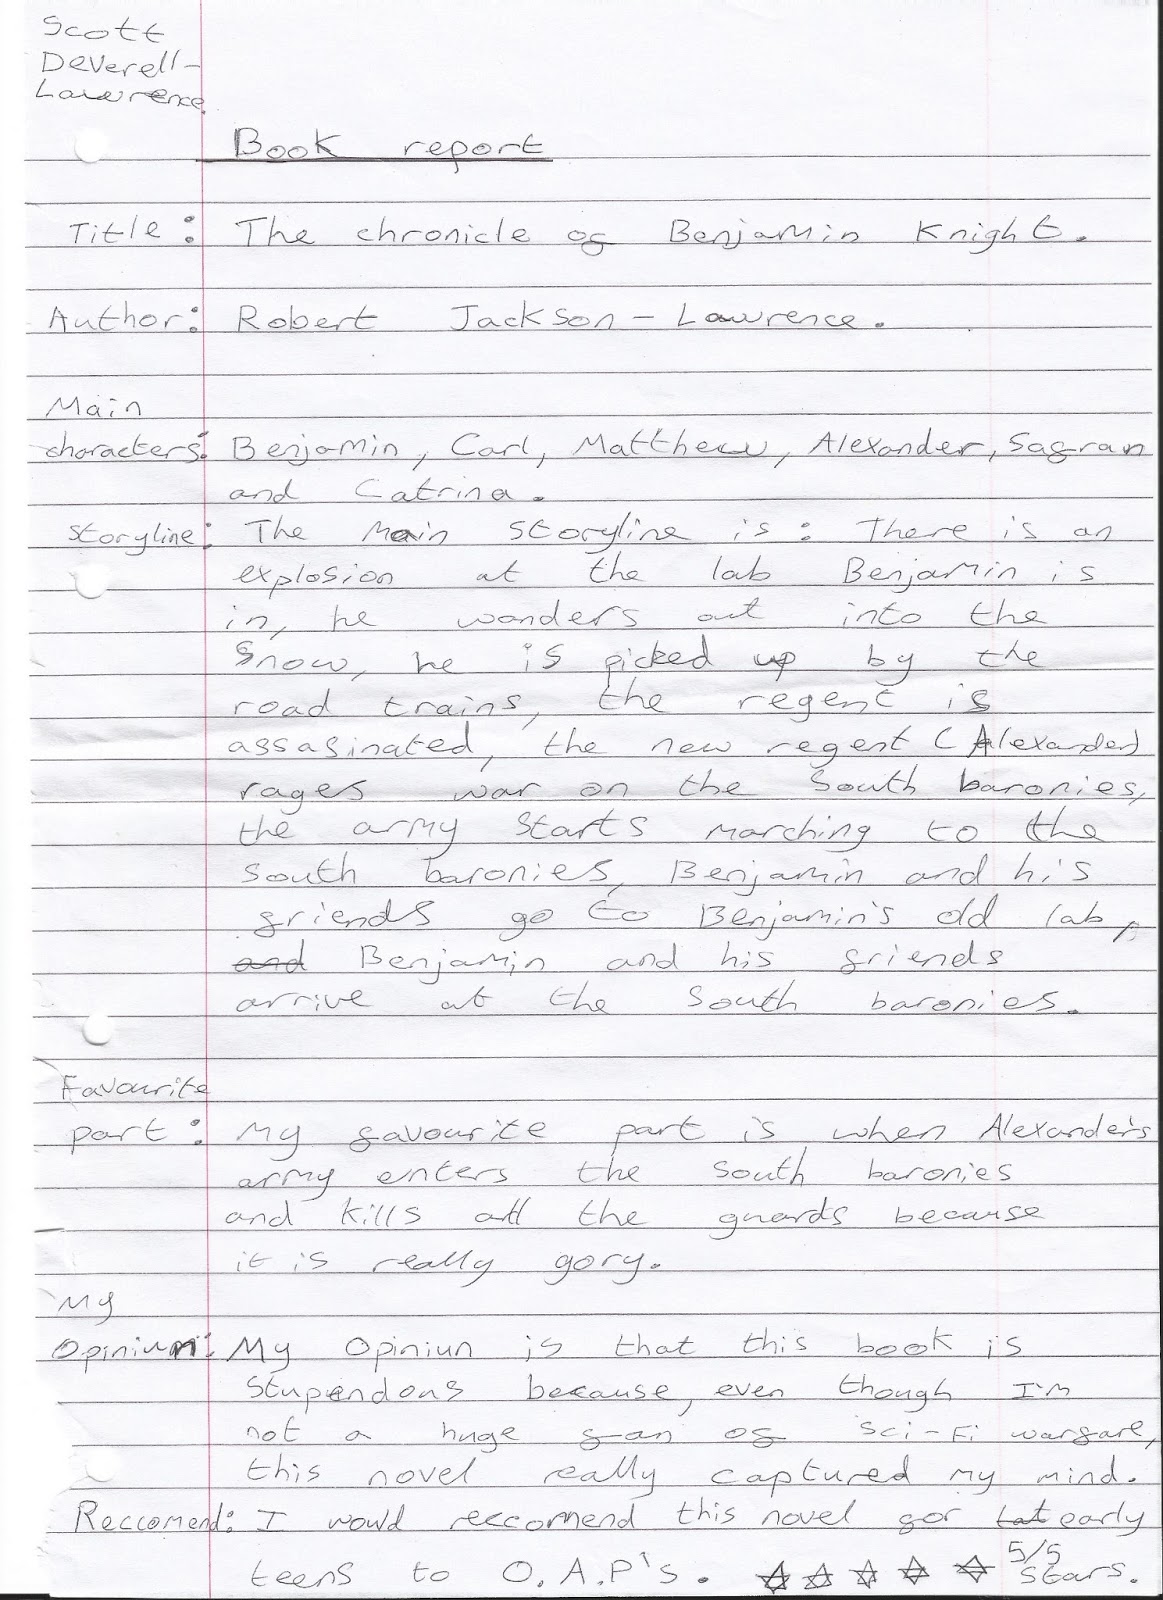 Scott
Deverell-
Lawrence
Book report
Title: The chronicle of Benjamin Knight.
Author: Robert Jackson-Lawrence.
Main
characters: Benjamin, Carl, Matthew, Alexander, Sagran
and Catrina.
Storyline: The Main Storyline is: There is an
explosion at the lab Benjamin is
in, he wanders out into the
Snow, he is picked up by the
road trains, the regent is
assasinated, the new regent (Alexander)
rages war on the South baronies,
the army starts marching to the
South baronies, Benjamin and his
friends go to Benjamin's old lab,
and Benjamin and his friends
arrive at the South baronies.
Favourite
part: My favourite part is when Alexander's
army enters the South baronies
and kills all the guards because
it is really gory.
My
Opiniun: My Opiniun is that this book is
Stupendous because, even though I'm
not a huge fan of Sci-Fi warfare,
this novel really captured my mind.
Reccomend: I would reccomend this novel for lat early
teens to O.A.P's. 5/5
Stars.